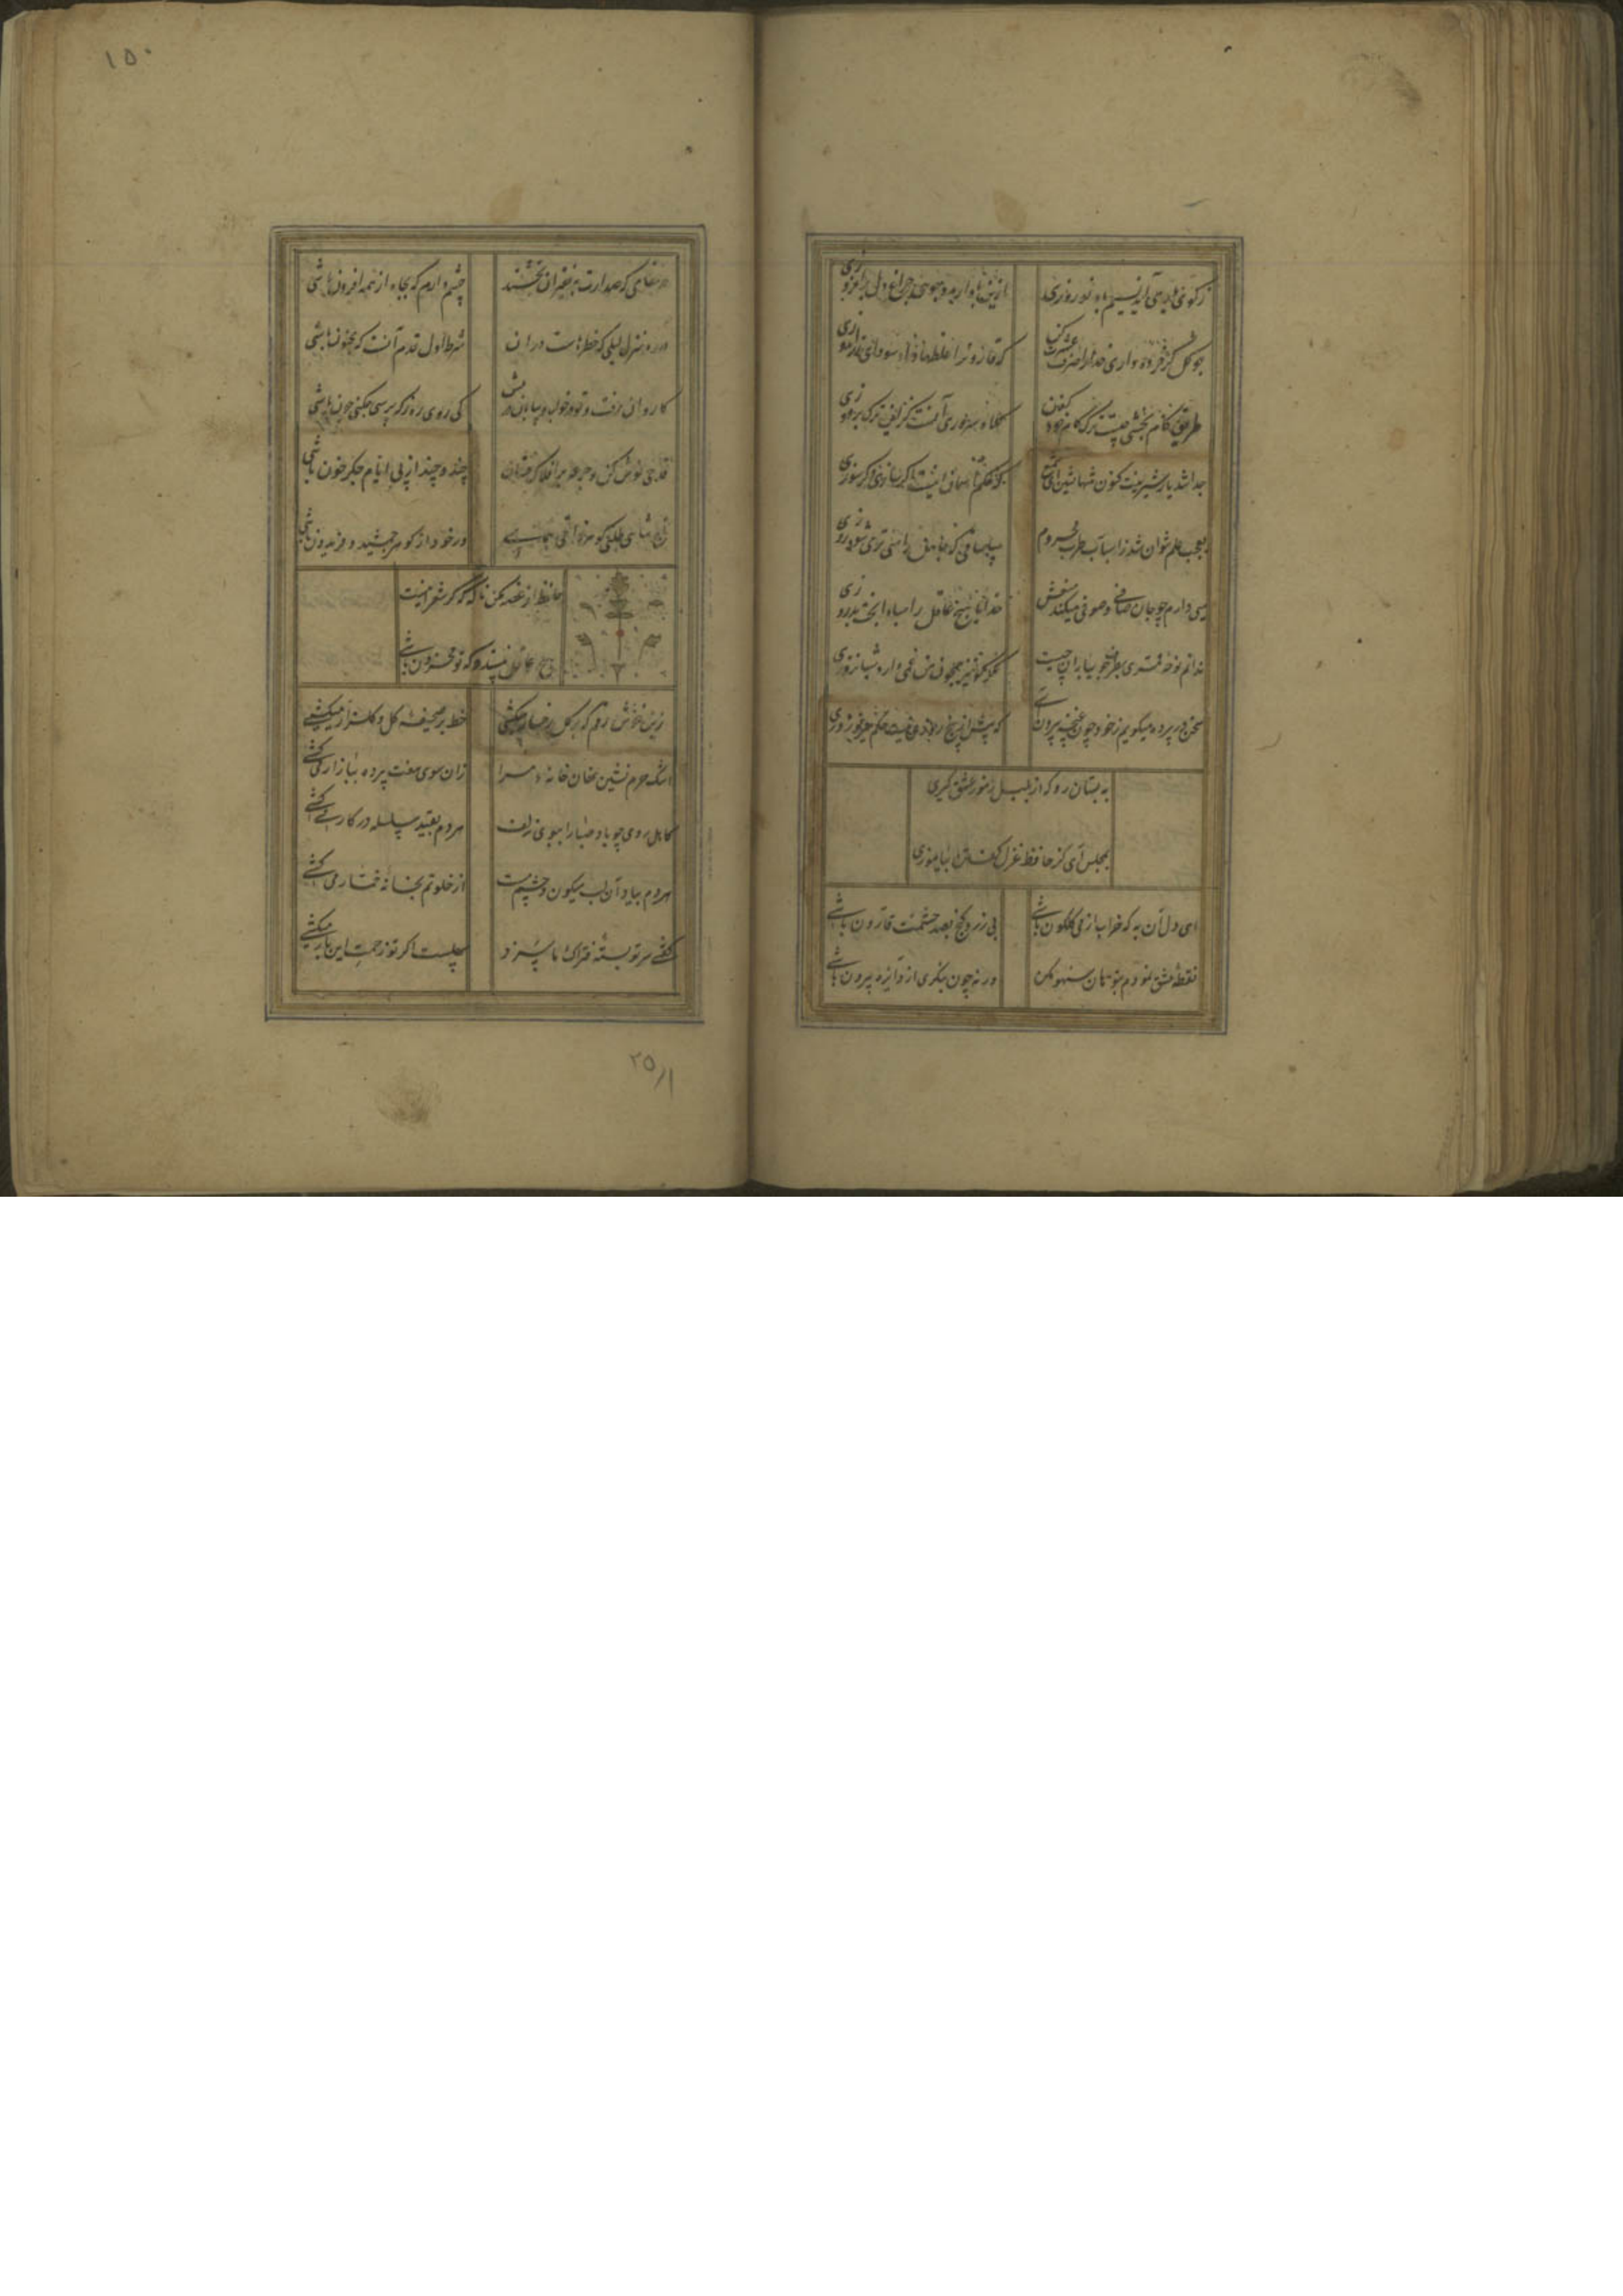 ز کوی یار می آید نسیم باد نوروزی
ازین باد ار مدد جویی چراغ دل برافروزی
چو گل گر خرده داری خدا را صرف عشرت کن
که قارون را غلطها داد سودای زراندوزی
طریق کام بخشی چیست ترک کام خود کردن
کلاه سروری آنست کزین ترک بردوزی
جدا شد یار شیرینت کنون تنها نشین ای شمع
که حکم آسمان اینست اگر سازی و گر سوزی
بعجب علم نتوان شد ز اسباب طرب محروم
می دارم چو جان صافی و صوفی میکند عیبش
خدایا هیچ عاقل را مبادا بخت بد روزی
ندانم نوحه قمری بطرف جویباران چیست
مگر او نیز همچون من غمی دارد شبانروزی
سخن در پرده میگویم ز خود چون غنچه بیرون آی
که بیش از پنج روزی نیست حکم میر نوروزی
به بستان رو که از بلبل رموز عشق گیری
بمجلس آی کز حافظ غزل گفتن بیاموزی
ای دل آن به که خراب از می گلگون باشی
بی زر و گنج بصد حشمت قارون باشی
نقطه عشق نمودم بتو هان سهو مکن
ورنه چون بنگری از دایره بیرون باشی
۱۵۰
در مقامی که صدارت بفقیران بخشند
چشم دارم که بجاه از همه افزون باشی
در ره منزل لیلی که خطرهاست در آن
شرط اول قدم آنست که مجنون باشی
کاروان رفت و تو در خواب و بیابان در پیش
کی روی ره ز که پرسی چکنی چون باشی
قدحی نوش کن و جرعه بر افلاک فشان
چند و چند از پی ایام جگر خون باشی
تاج شاهی طلبی گوهر ذاتی بنمای
ور خود از گوهر جمشید و فریدون باشی
حافظ از فقر مکن ناله که گر شعر اینست
هیچ عاقل نپسندد که تو محزون باشی
زین خوش رقم که بر گل رخسار میکشی
خط بر صحیفه گل و گلزار میکشی
اشک حرم نشین نهان خانه مرا
زان سوی هفت پرده ببازار می کشی
کاهل روی چو باد صبا را ببوی زلف
هر دم بقید سلسله در کار می کشی
هر دم بیاد آن لب میگون و چشم مست
از خلوتم بخانه خمار می کشی
گفتی سر تو بسته فتراک ما سزد
سهلست اگر تو زحمت این بار میکشی
۲۵/۱